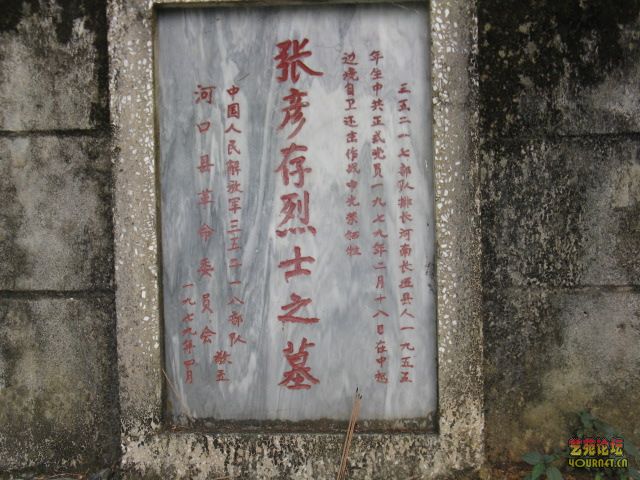 三五二一七部队排长河南长垣县人一九五五
年生中共正式党员一九七九年二月十八日在中越
边境自卫还击作战中光荣牺牲
张彦存烈士之墓
中国人民解放军三五二一八部队
河口县革命委员会 敬立
一九七九年四月
艺苑论坛
YOURNET.CN